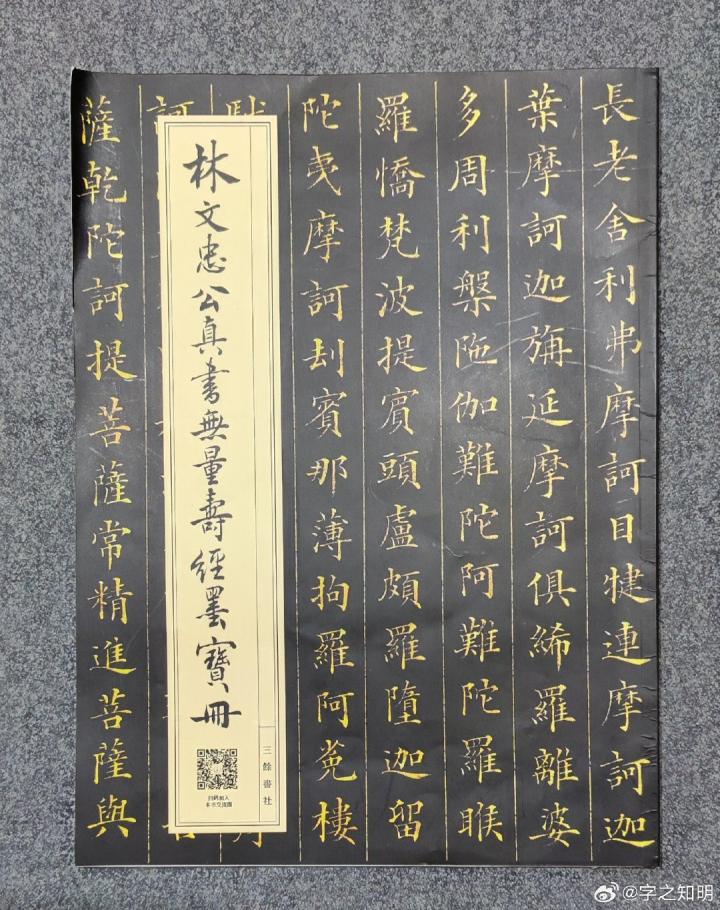 長老舍利弗摩訶目犍連摩訶迦
葉摩訶迦旃延摩訶俱絺羅離婆
多周利槃陁伽難陀阿難陀羅睺
羅憍梵波提賓頭盧頗羅墮迦留
陀夷摩訶劫賓那薄拘羅阿㝹樓
訶
薩乾陀訶提菩薩常精進菩薩與
林文忠公真書無量壽經墨寶冊
三餘書社
扫码加入
本书交流圈
@字之知明